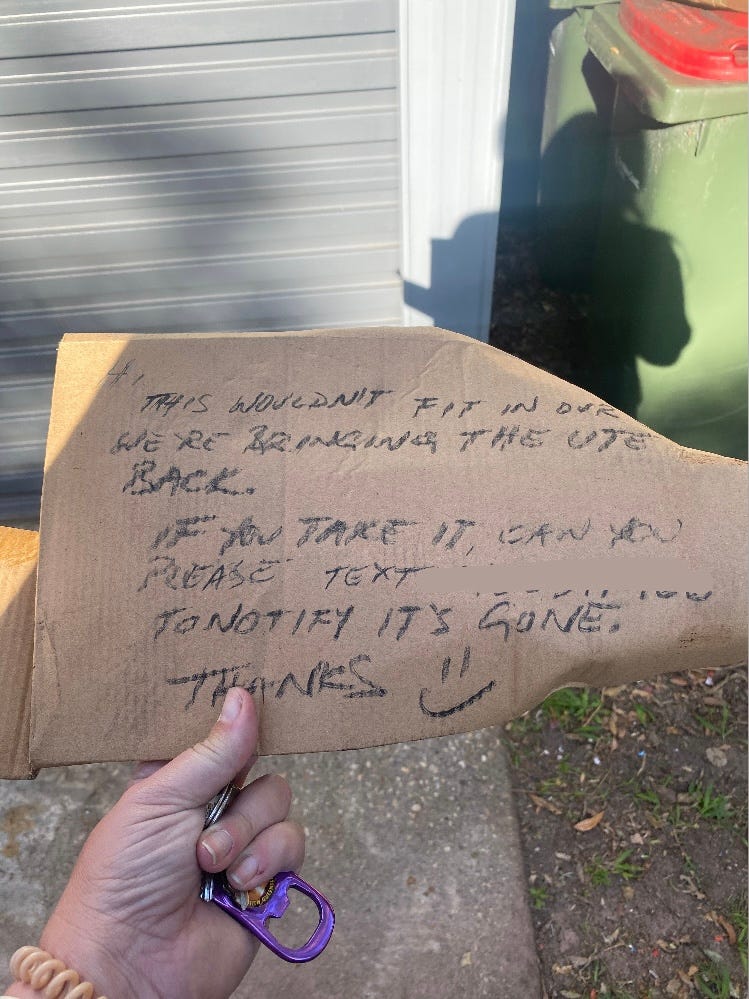 Hi,
THIS WOULDN'T FIT IN OUR
WE'RE BRINGING THE UTE
BACK.
IF YOU TAKE IT, CAN YOU
PLEASE TEXT
TO NOTIFY IT'S GONE.
THANKS